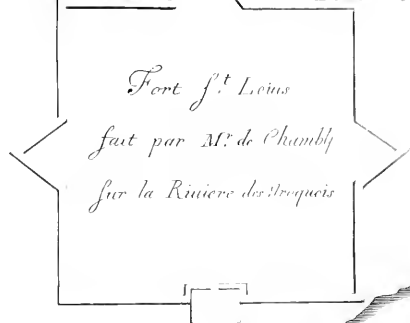 Fort S.t Loius
fait par M.r de Chambly
sur la Riuiere des Iroquois